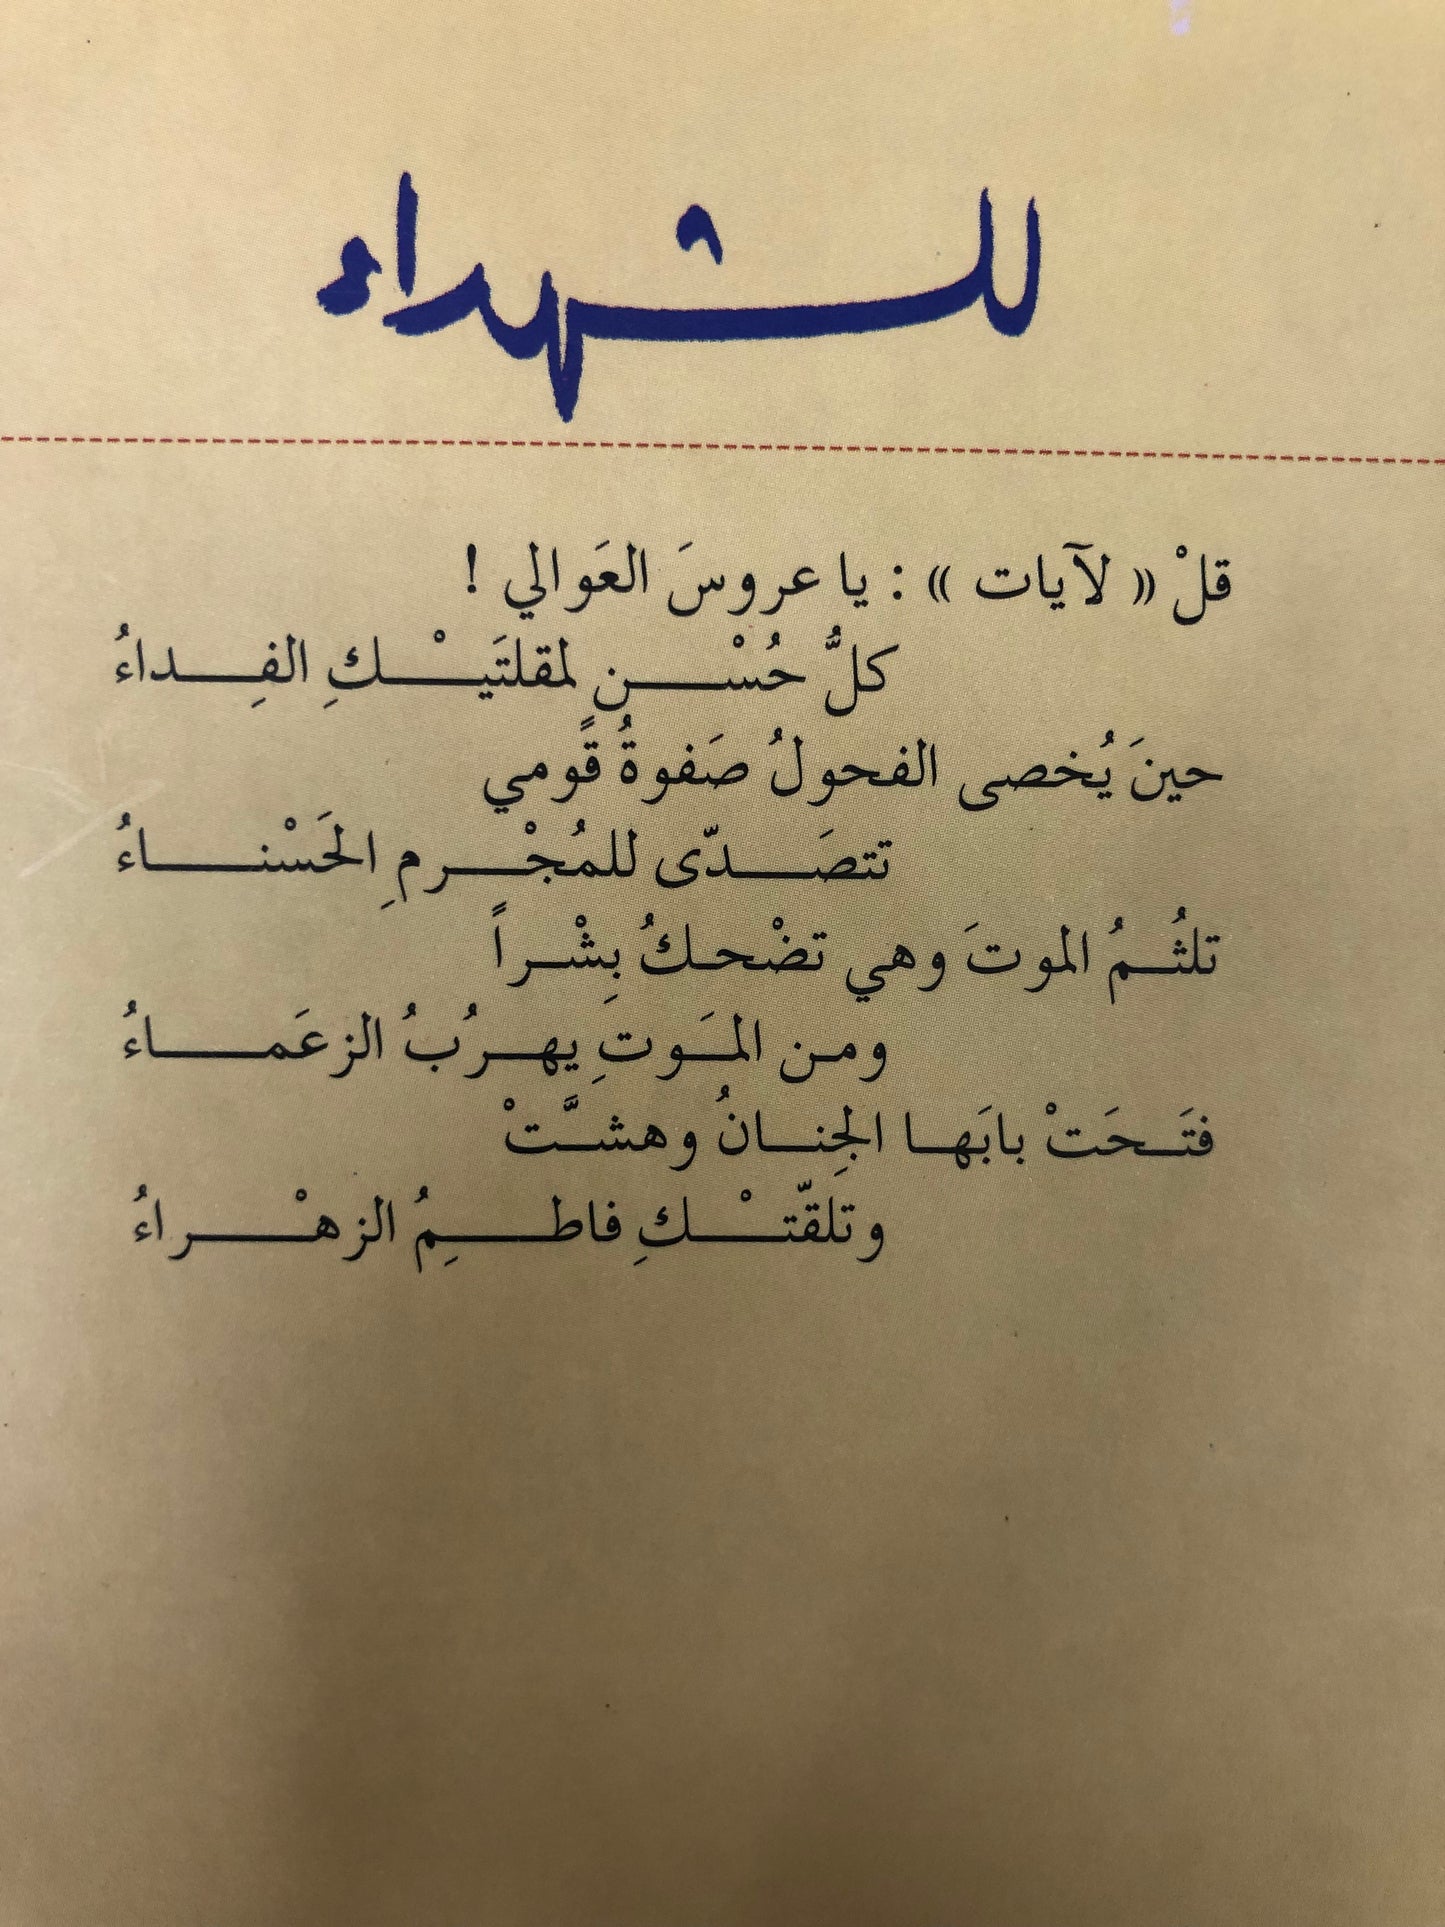 للشهداء
قلْ « لآيات » : يا عروسَ العَوالي !
كلُّ حُسْن لمقلتَيْكِ الفِداءُ
حينَ يُخصى الفحولُ صَفوةُ قًومي
تتصَدّى للمُجْرمِ الحَسْناءُ
تلثُمُ الموتَ وهي تضْحكُ بِشْراً
ومن المَوتِ يهرُبُ الزعَماءُ
فتَحَتْ بابَها الجِنانُ وهشَّتْ
وتلقّتْكِ فاطِمُ الزهْراءُ